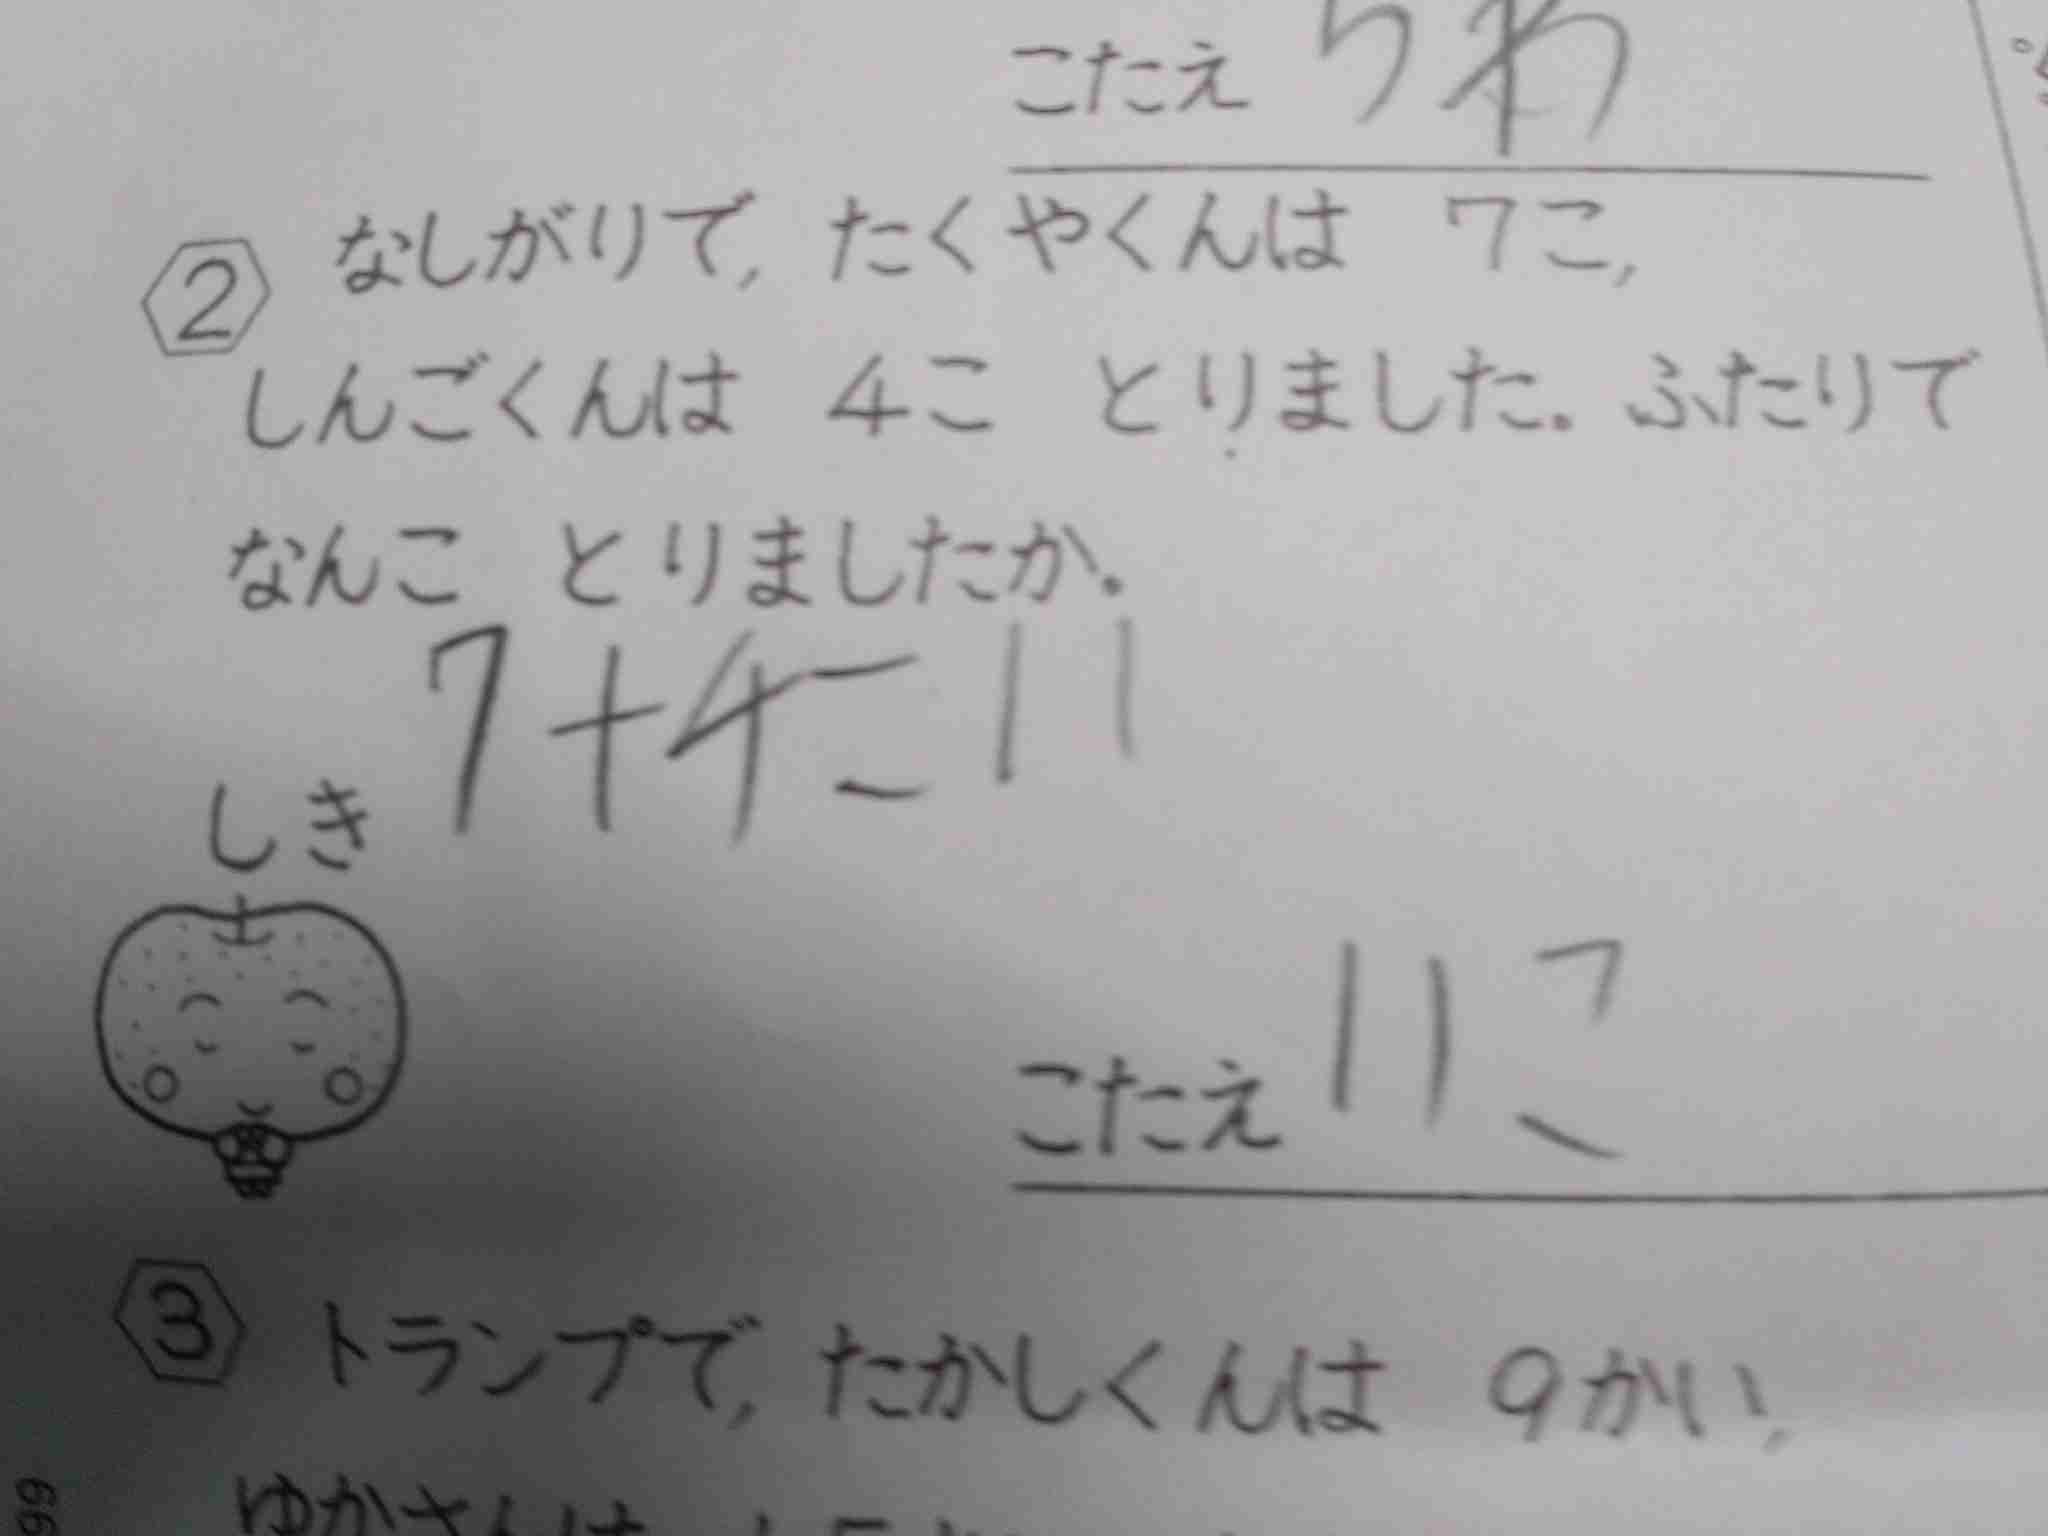 こたえ
② なしがりで, たくやくんは 7こ,
しんごくんは 4こ とりました。ふたりで
なんこ とりましたか。
しき 7+4=11
こたえ 11こ
③ トランプで, たかしくんは 9かい,
ゆかさんは
99